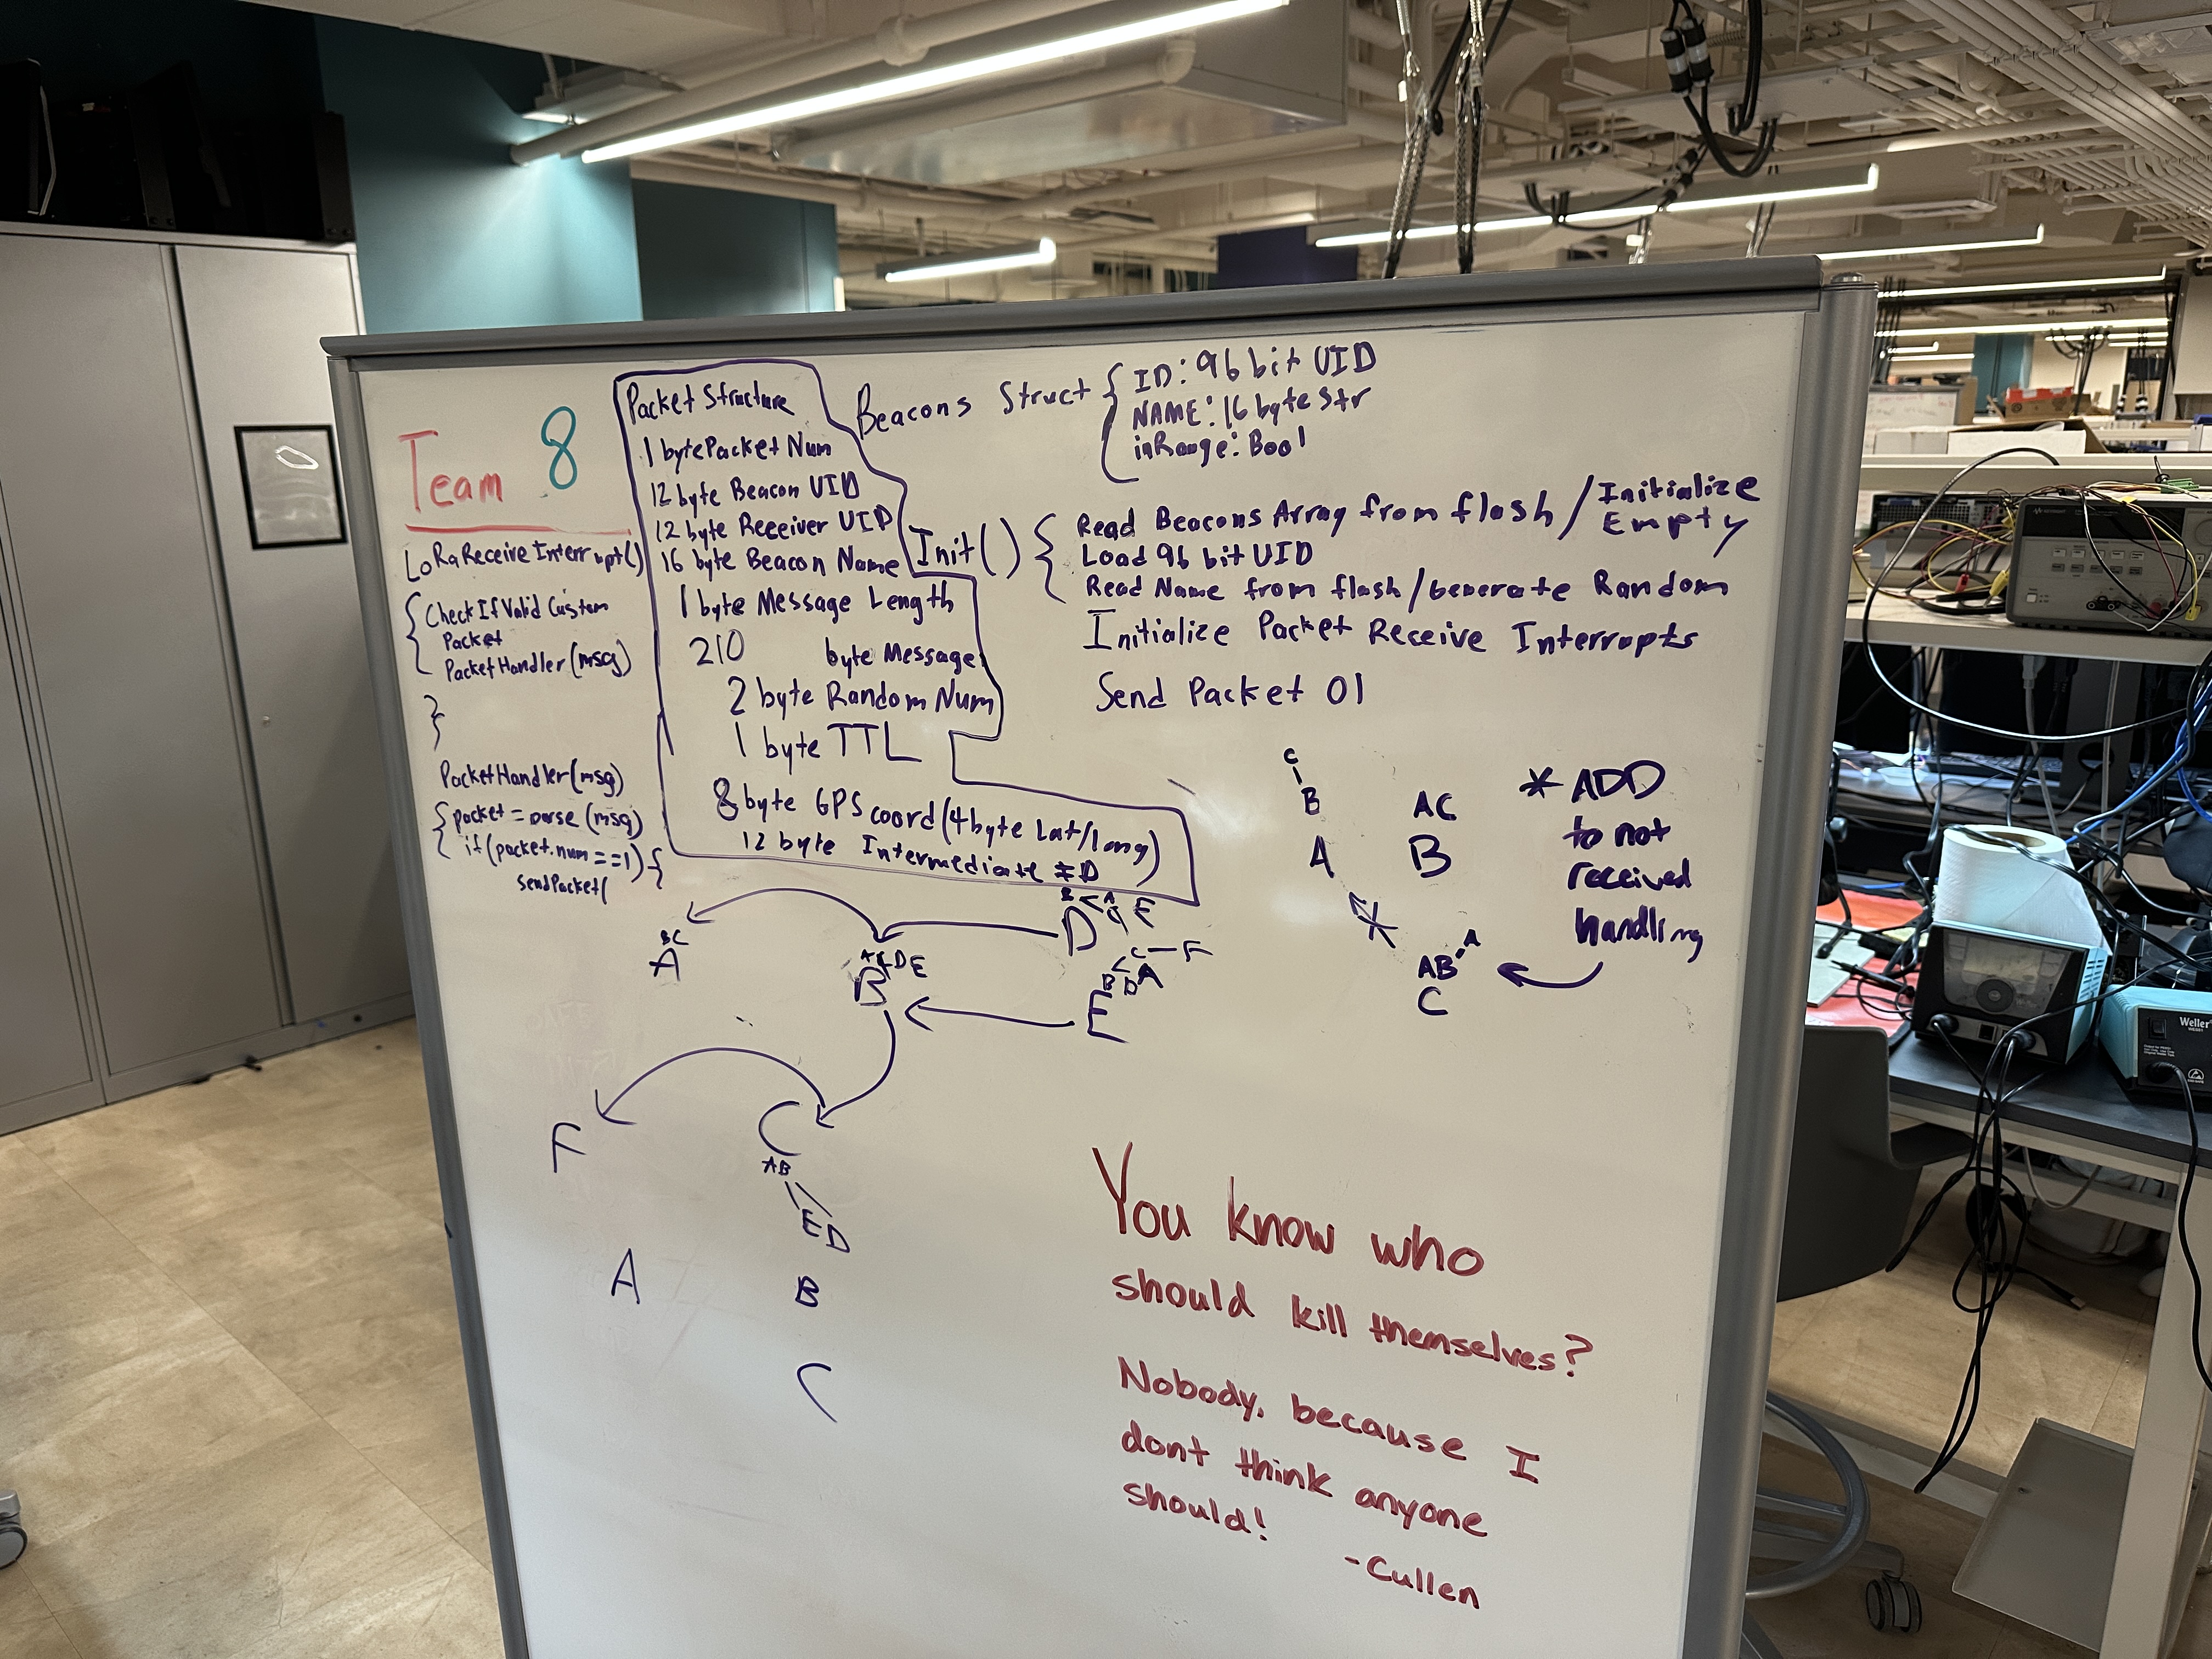 Team 8
LoRaReceiveInterrupt()
{ CheckIfValid Custom
Packet
PacketHandler(msg)
}
PacketHandler(msg)
{ packet = parse (msg)
if(packet.num==1) {
sendPacket(
Packet Structure
1 byte Packet Num
12 byte Beacon UID
12 byte Receiver UID
16 byte Beacon Name
1 byte Message Length
210 byte Message
2 byte Random Num
1 byte TTL
8 byte GPS coord (4 byte Lat/long)
12 byte Intermediate ID
Beacons Struct { ID: 96 bit UID
NAME: 16 byte str
inRange: Bool
Init() { Read Beacons Array from flash / Initialize
Empty
Load 96 bit UID
Read Name from flash/Generate Random
Initialize Packet Receive Interrupts
Send Packet 01
C
B
A
AC
B
AB A
C
* ADD
to not
received
handling
BC
A
DE
B
D
E
C F
B D A
E
F
C
AB
ED
A B
C
You know who
should kill themselves?
Nobody, because I
dont think anyone
should!
-Cullen
Weller